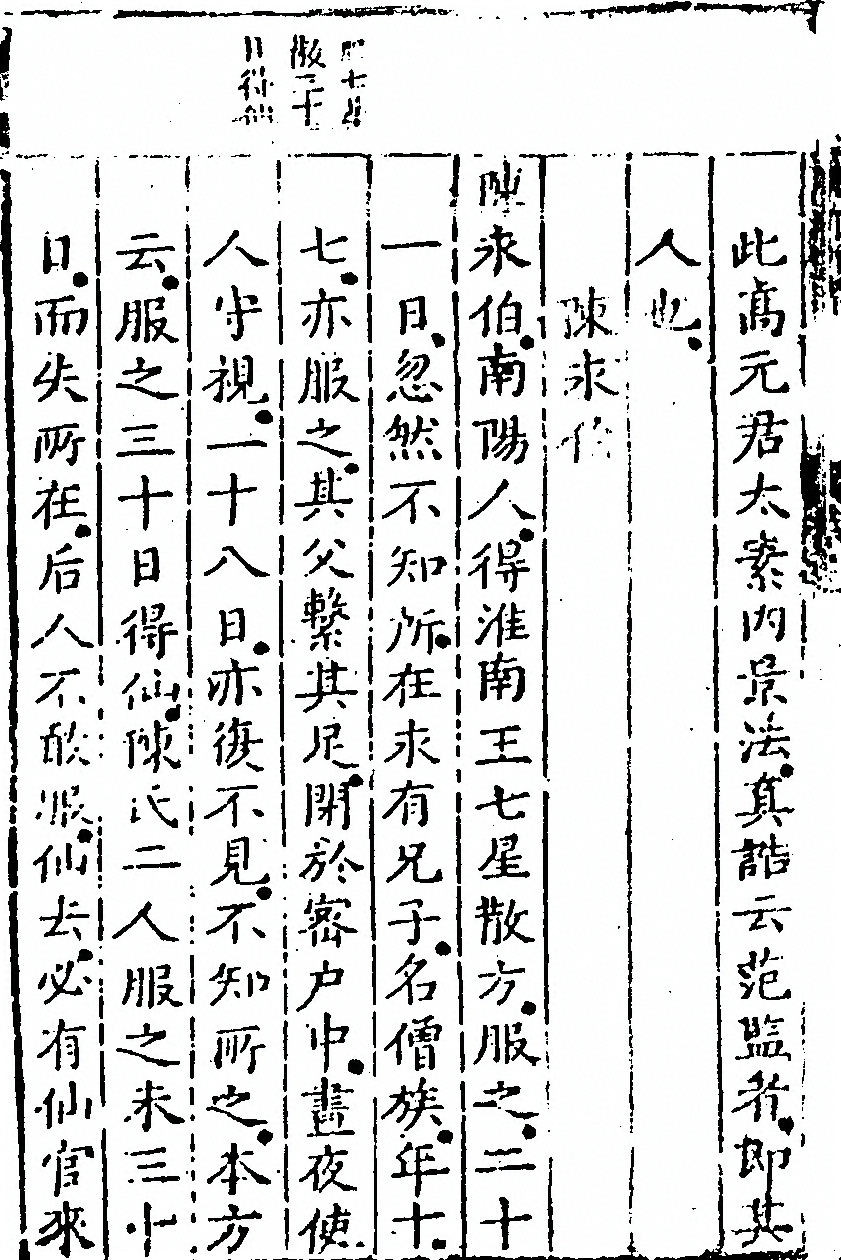 此高元君太素內景法真誥云范監者即其
人也
陳永伯
陳永伯南陽人得淮南王七星散方服之二十
一日忽然不知所在永有兄子名僧族年十
七亦服之其父繫其足閉於密户中晝夜使
人守視一十八日亦復不見不知所之本方
云服之三十日得仙陳氏二人服之未三十
日而失所在后人不敢服仙去必有仙官來
服七星
散三十
日得仙